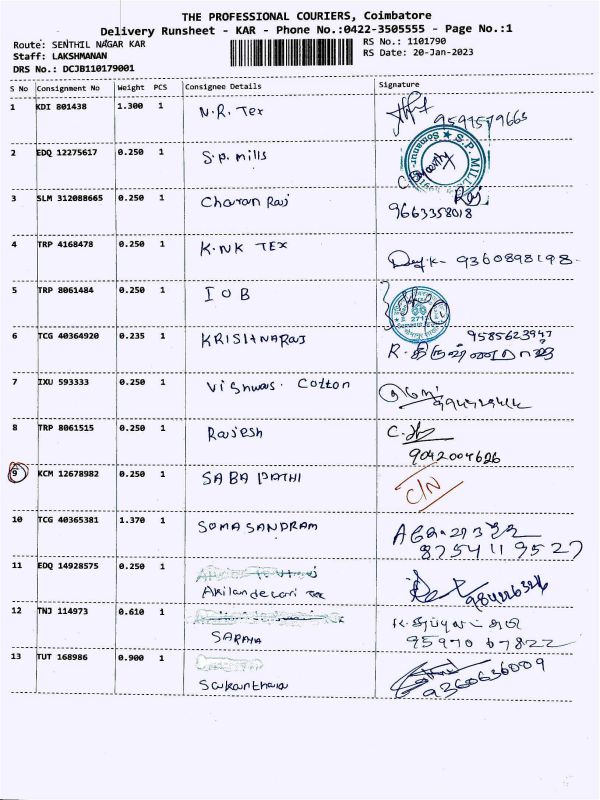 THE PROFESSIONAL COURIERS, Coimbatore
Delivery Runsheet - KAR - Phone No.:0422-3505555 - Page No.:1
Route: SENTHIL NAGAR KAR
RS No.: 1101790
Staff: LAKSHMANAN
RS Date: 20-Jan-2023
DRS No.: DCJB110179001
S No Consignment No Weight PCS Consignee Details Signature
1 KDI 801438 1.300 1 N.R. Tex
9597579663
2 EDQ 12275617 0.250 1 S.P. Mills
S.P. MILL
3 SLM 312088665 0.250 1 Charan Raj Raj
9663358018
4 TRP 4168478 0.250 1 K.NK TEX 9360898198
5 TRP 8061484 0.250 1 I O B
6 TCG 40364920 0.235 1 KRISHNARAJ 9585623947
7 IXU 593333 0.250 1 Vishwas. Cotton
8 TRP 8061515 0.250 1 Rajesh
9042004626
9 KCM 12678982 0.250 1 SABA PATHI C/N
10 TCG 40365381 1.370 1 SOMASANDRAM
8754119527
11 EDQ 14928575 0.250 1
Akilandewari Tex
12 TNJ 114973 0.610 1
SARAHA
95970 67822
13 TUT 168986 0.900 1
9360636009